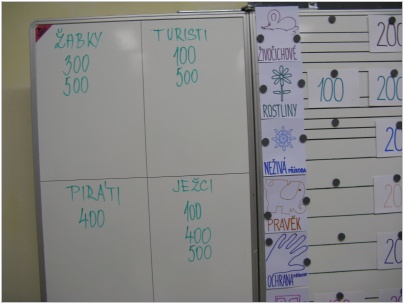 ŽABKY
300
500
TURISTI
100
500
PIRÁTI
400
JEŽCI
100
400
500
ŽIVOČICHOVÉ
200
ROSTLINY
100
200
NEŽIVÁ PŘÍRODA
20
PRAVĚK
20
OCHRANA PŘÍRODY
20